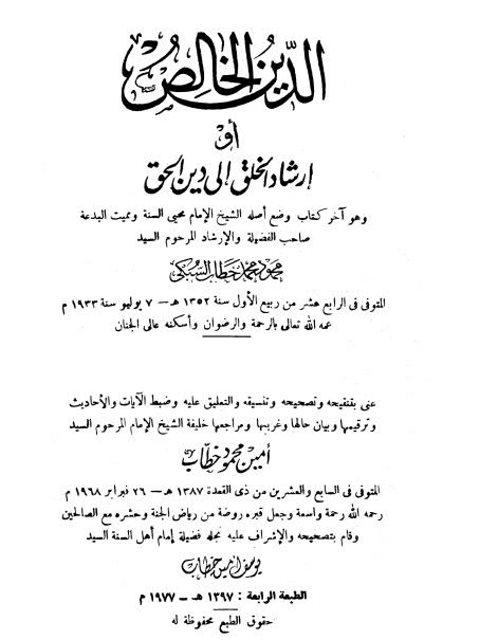 الدين الخالص
أو
إرشاد الخلق إلى دين الحق
وهو آخر كتاب وضع أصله الشيخ الإمام محيى السنة ومميت البدعة
صاحب الفضيلة والإرشاد المرحوم السيد
محمود محمد خطاب السبكى
المتوفى فى الرابع عشر من ربيع الأول سنة ١٣٥٢ هـ - ٧ يوليو سنة ١٩٣٣ م
عمه الله تعالى بالرحمة والرضوان وأسكنه عالى الجنان
عنى بتنقيحه وتصحيحه وتنسيقه والتعليق عليه وضبط الآيات والأحاديث
وترقيمها وبيان حالها وغريبها ومراجعها خليفة الشيخ الإمام المرحوم السيد
أمين محمود خطاب
المتوفى فى السابع والعشرين من ذى القعدة ١٣٨٧ هـ - ٢٦ فبراير ١٩٦٨ م
رحمه الله رحمة واسعة وجعل قبره روضة من رياض الجنة وحشره مع الصالحين
وقام بتصحيحه والإشراف عليه نجله فضيلة إمام أهل السنة السيد
يوسف أمين خطاب
الطبعة الرابعة : ١٣٩٧ هـ - ١٩٧٧ م
حقوق الطبع محفوظة له